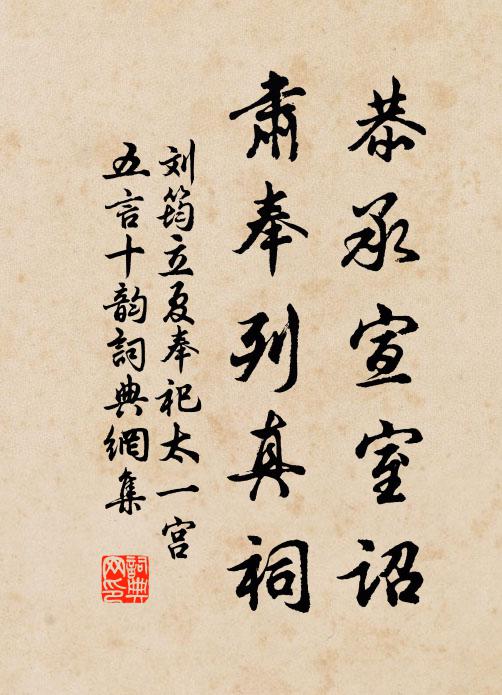 恭承宣室詔
肅奉列真祠
刘筠立夏奉祀太一宫
五言十韵詞典網集
詞典網印